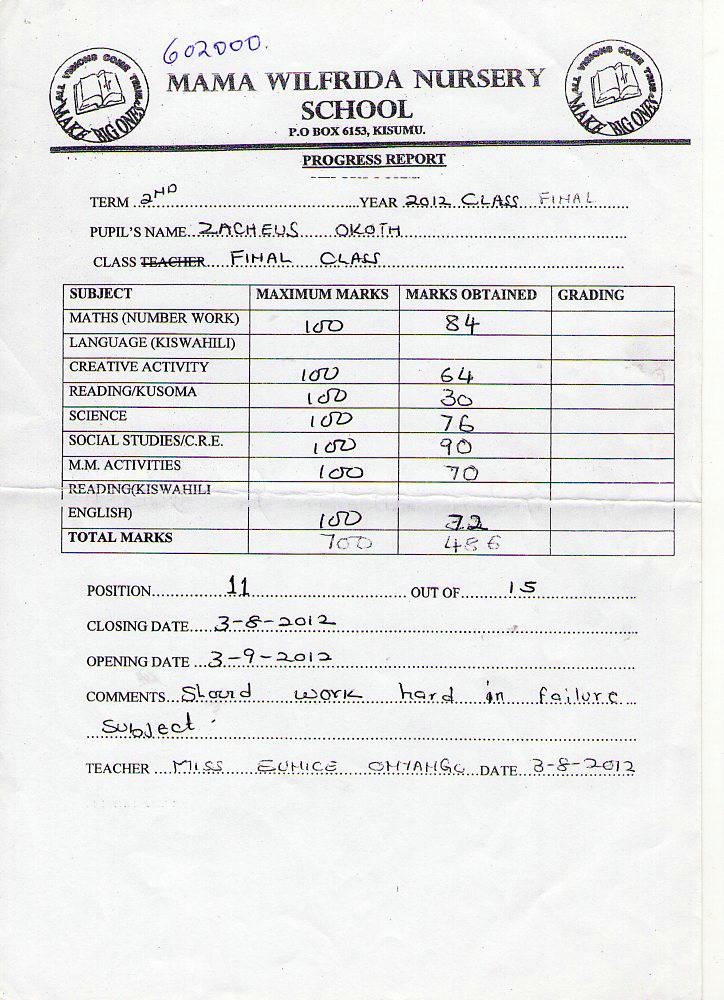 602000.
ALL VISIONS COME TRUE
MAKE BIG ONES
ALL VISIONS COME TRUE
MAKE BIG ONES
MAMA WILFRIDA NURSERY
SCHOOL
P.O BOX 6153, KISUMU.
PROGRESS REPORT
TERM 2ND YEAR 2012 CLASS FINAL
PUPIL'S NAME ZACHEUS OKOTH
CLASS TEACHER FINAL CLASS
SUBJECT MAXIMUM MARKS MARKS OBTAINED GRADING
MATHS (NUMBER WORK) 100 84
LANGUAGE (KISWAHILI)
CREATIVE ACTIVITY 100 64
READING/KUSOMA 100 30
SCIENCE 100 76
SOCIAL STUDIES/C.R.E. 100 90
M.M. ACTIVITIES 100 70
READING(KISWAHILI
ENGLISH) 100 72
TOTAL MARKS 700 486
POSITION 11 OUT OF 15
CLOSING DATE 3-8-2012
OPENING DATE 3-9-2012
COMMENTS Should work hard in failure
Subject.
TEACHER MISS EUNICE ONYANGO DATE 3-8-2012